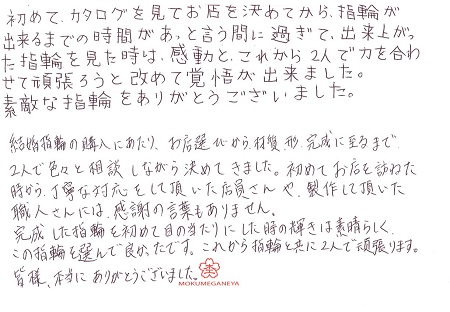 初めて、カタログを見てお店を決めてから、指輪が
出来るまでの時間があっと言う間に過ぎて、出来上がっ
た指輪を見た時は、感動と、これから2人で力を合わ
せて頑張ろうと改めて覚悟が出来ました。
素敵な指輪をありがとうございました。
結婚指輪の購入にあたり、お店選びから、材質、形、完成に至るまで、
2人で色々と相談しながら決めてきました。初めてお店を訪ねた
時から、丁寧な対応をして頂いた店員さんや、製作して頂いた
職人さんには、感謝の言葉もありません。
完成した指輪を初めて目の当たりにした時の輝きは素晴らしく、
この指輪を選んで良かったです。これから指輪と共に2人で頑張ります。
皆様、本当にありがとうございました。
MOKUMEGANEYA